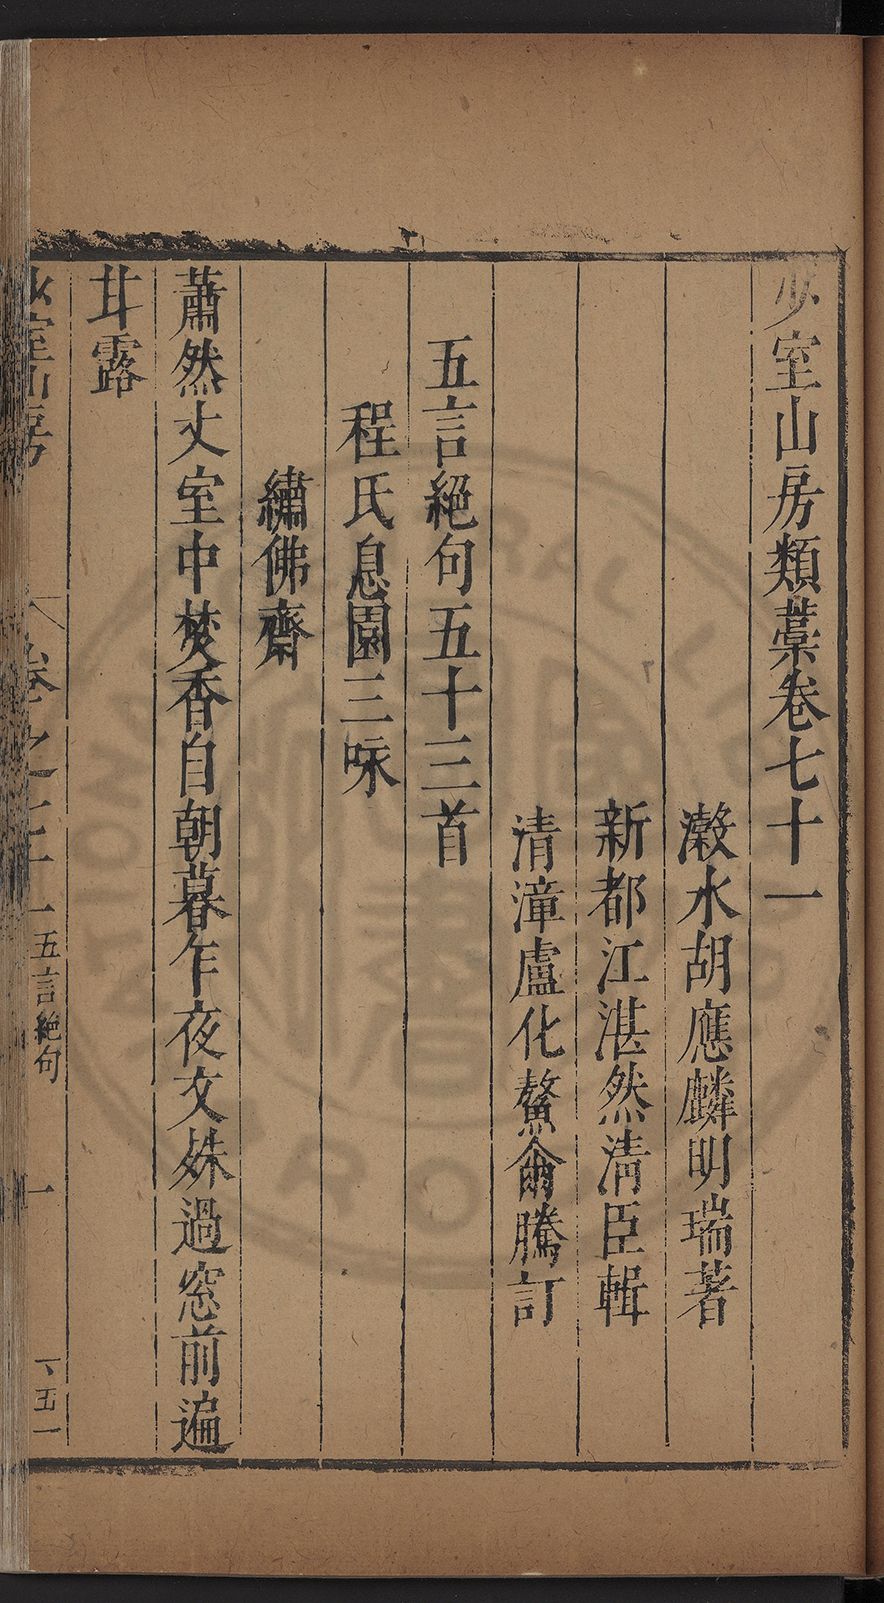 少室山房類藁卷七十一
瀫水胡應麟明瑞著
新都江湛然清臣輯
清漳盧化鰲侖騰訂
五言絕句五十三首
程氏息園三咏
繡佛齋
蕭然丈室中焚香自朝暮乍夜文姝過窓前遍
甘露
少室山房
卷之七十一
五言絕句
一